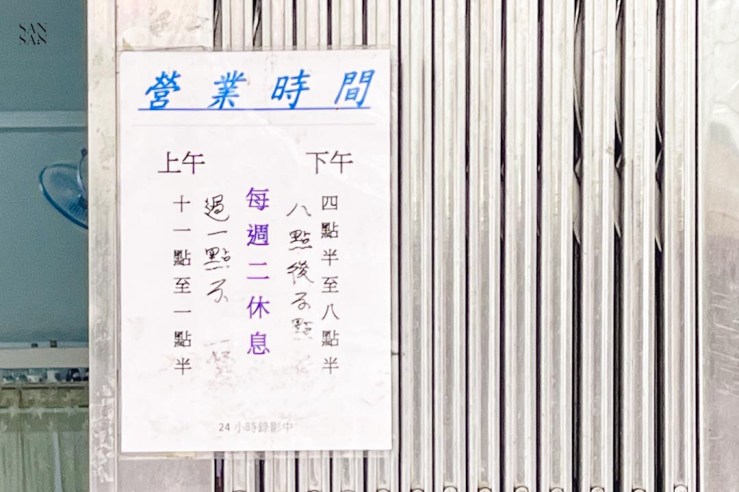 SAN
SAN
營業時間
上午
下午
四點半至八點半
八點後不點
每週二休息
過一點不
十一點至一點半
24 小時錄影中